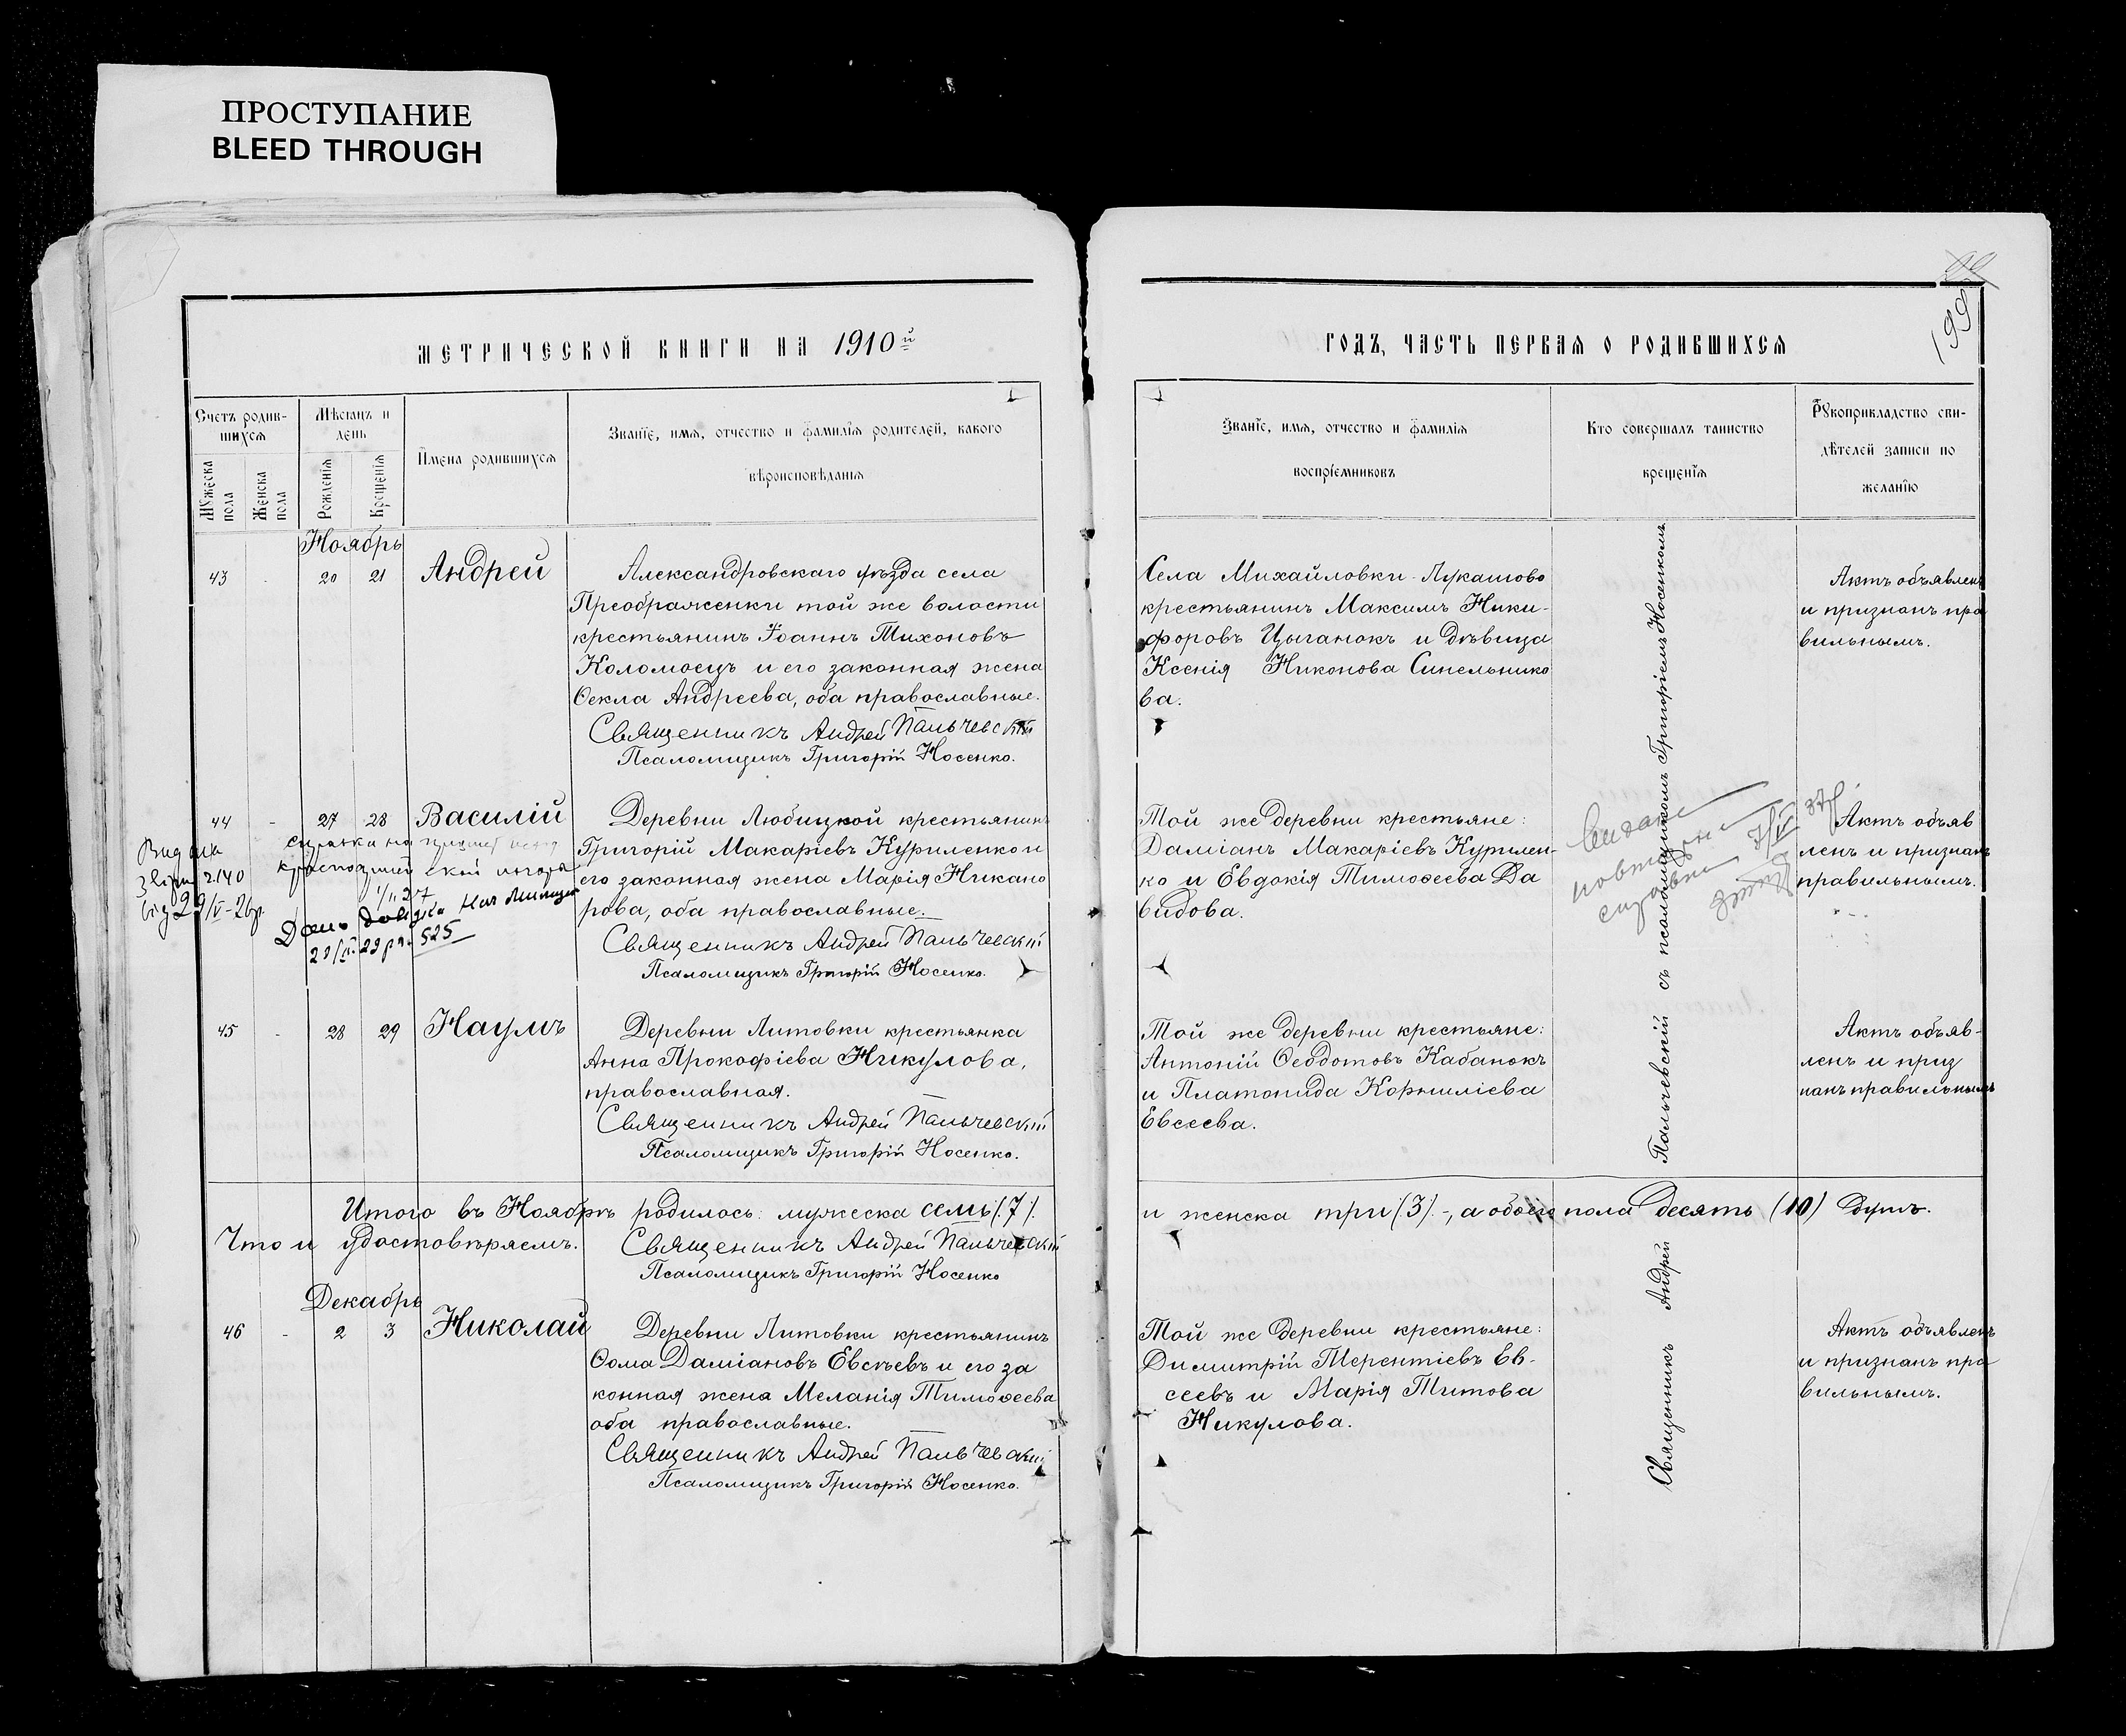 ПРОСТУПАНИЕ
BLEED THROUGH
МЕТРИЧЕСКОЙ КНИГИ НА 1910й
Счетъ родив-
шихся
Мѣсяцъ и
день
Имена родившихся
Званіе, имя, отчество и фамилія родителей, какого
вѣроисповѣданія
Мужеска
пола
Женска
пола
Рожденія
Крещенія
Ноябрь
43 - 20 21 Андрей
Александровскаго уѣзда села
Преображенки той же волости
крестьянинъ Іоаннъ Тихоновъ
Коломоецъ и его законная жена
Ѳекла Андреева, оба православные.
Священникъ Андрей Пальчевскій
Псаломщикъ Григорій Носенко.
44 - 27 28 Василій
Деревни Любицкой крестьянинъ
Григорій Макаріевъ Куриленко и
его законная жена Марія Никано
рова, оба православные.
Священникъ Андрей Пальчевскій
Псаломщикъ Григорій Носенко.
справка на
1/II 27
525
45 - 28 29 Наумъ
Деревни Литовки крестьянка
Анна Прокофіева Никулова,
православная.
Священникъ Андрей Пальчевскій
Псаломщикъ Григорій Носенко.
Итого въ Ноябрѣ родилось: мужеска семь (7).
Что и удостовѣряемъ.
Священникъ Андрей Пальчевскій
Псаломщикъ Григорій Носенко
Декабрь
46 - 2 3 Николай
Деревни Литовки крестьянинъ
Ѳома Даміановъ Евсѣевъ и его за
конная жена Меланія Тимоѳеева
оба православные.
Священникъ Андрей Пальчевскій
Псаломщикъ Григорій Носенко.
199
ГОДЪ, ЧАСТЬ ПЕРВАЯ О РОДИВШИХСЯ
Званіе, имя, отчество и фамилія
воспріемниковъ
Кто совершалъ таинство
крещенія
Рукоприкладство сви-
дѣтелей записи по
желанію
Села Михайловки-Лукашово
крестьянинъ Максимъ Ники-
форовъ Цыганокъ и дѣвица
Ксенія Никонова Синельнико
ва.
Актъ объявленъ
и признанъ пра
вильнымъ.
Той же деревни крестьяне:
Даміанъ Макаріевъ Курилен-
ко и Евдокія Тимоѳеева Да
видова.
Актъ объяв
ленъ и признанъ
правильнымъ.
Той же деревни крестьяне:
Антоній Ѳеодотовъ Кабанокъ
и Платонида Корниліева
Евсеева.
Актъ объяв-
ленъ и приз
нанъ правильнымъ
и женска три (3) -, а обоего пола десять (10) душъ.
Той же деревни крестьяне:
Димитрій Терентіевъ Ев-
сеевъ и Марія Титова
Никулова.
Актъ объявленъ
и признанъ пра
вильнымъ.
Священникъ Андрей Пальчевскій съ псаломщикомъ Григоріемъ Носенкомъ